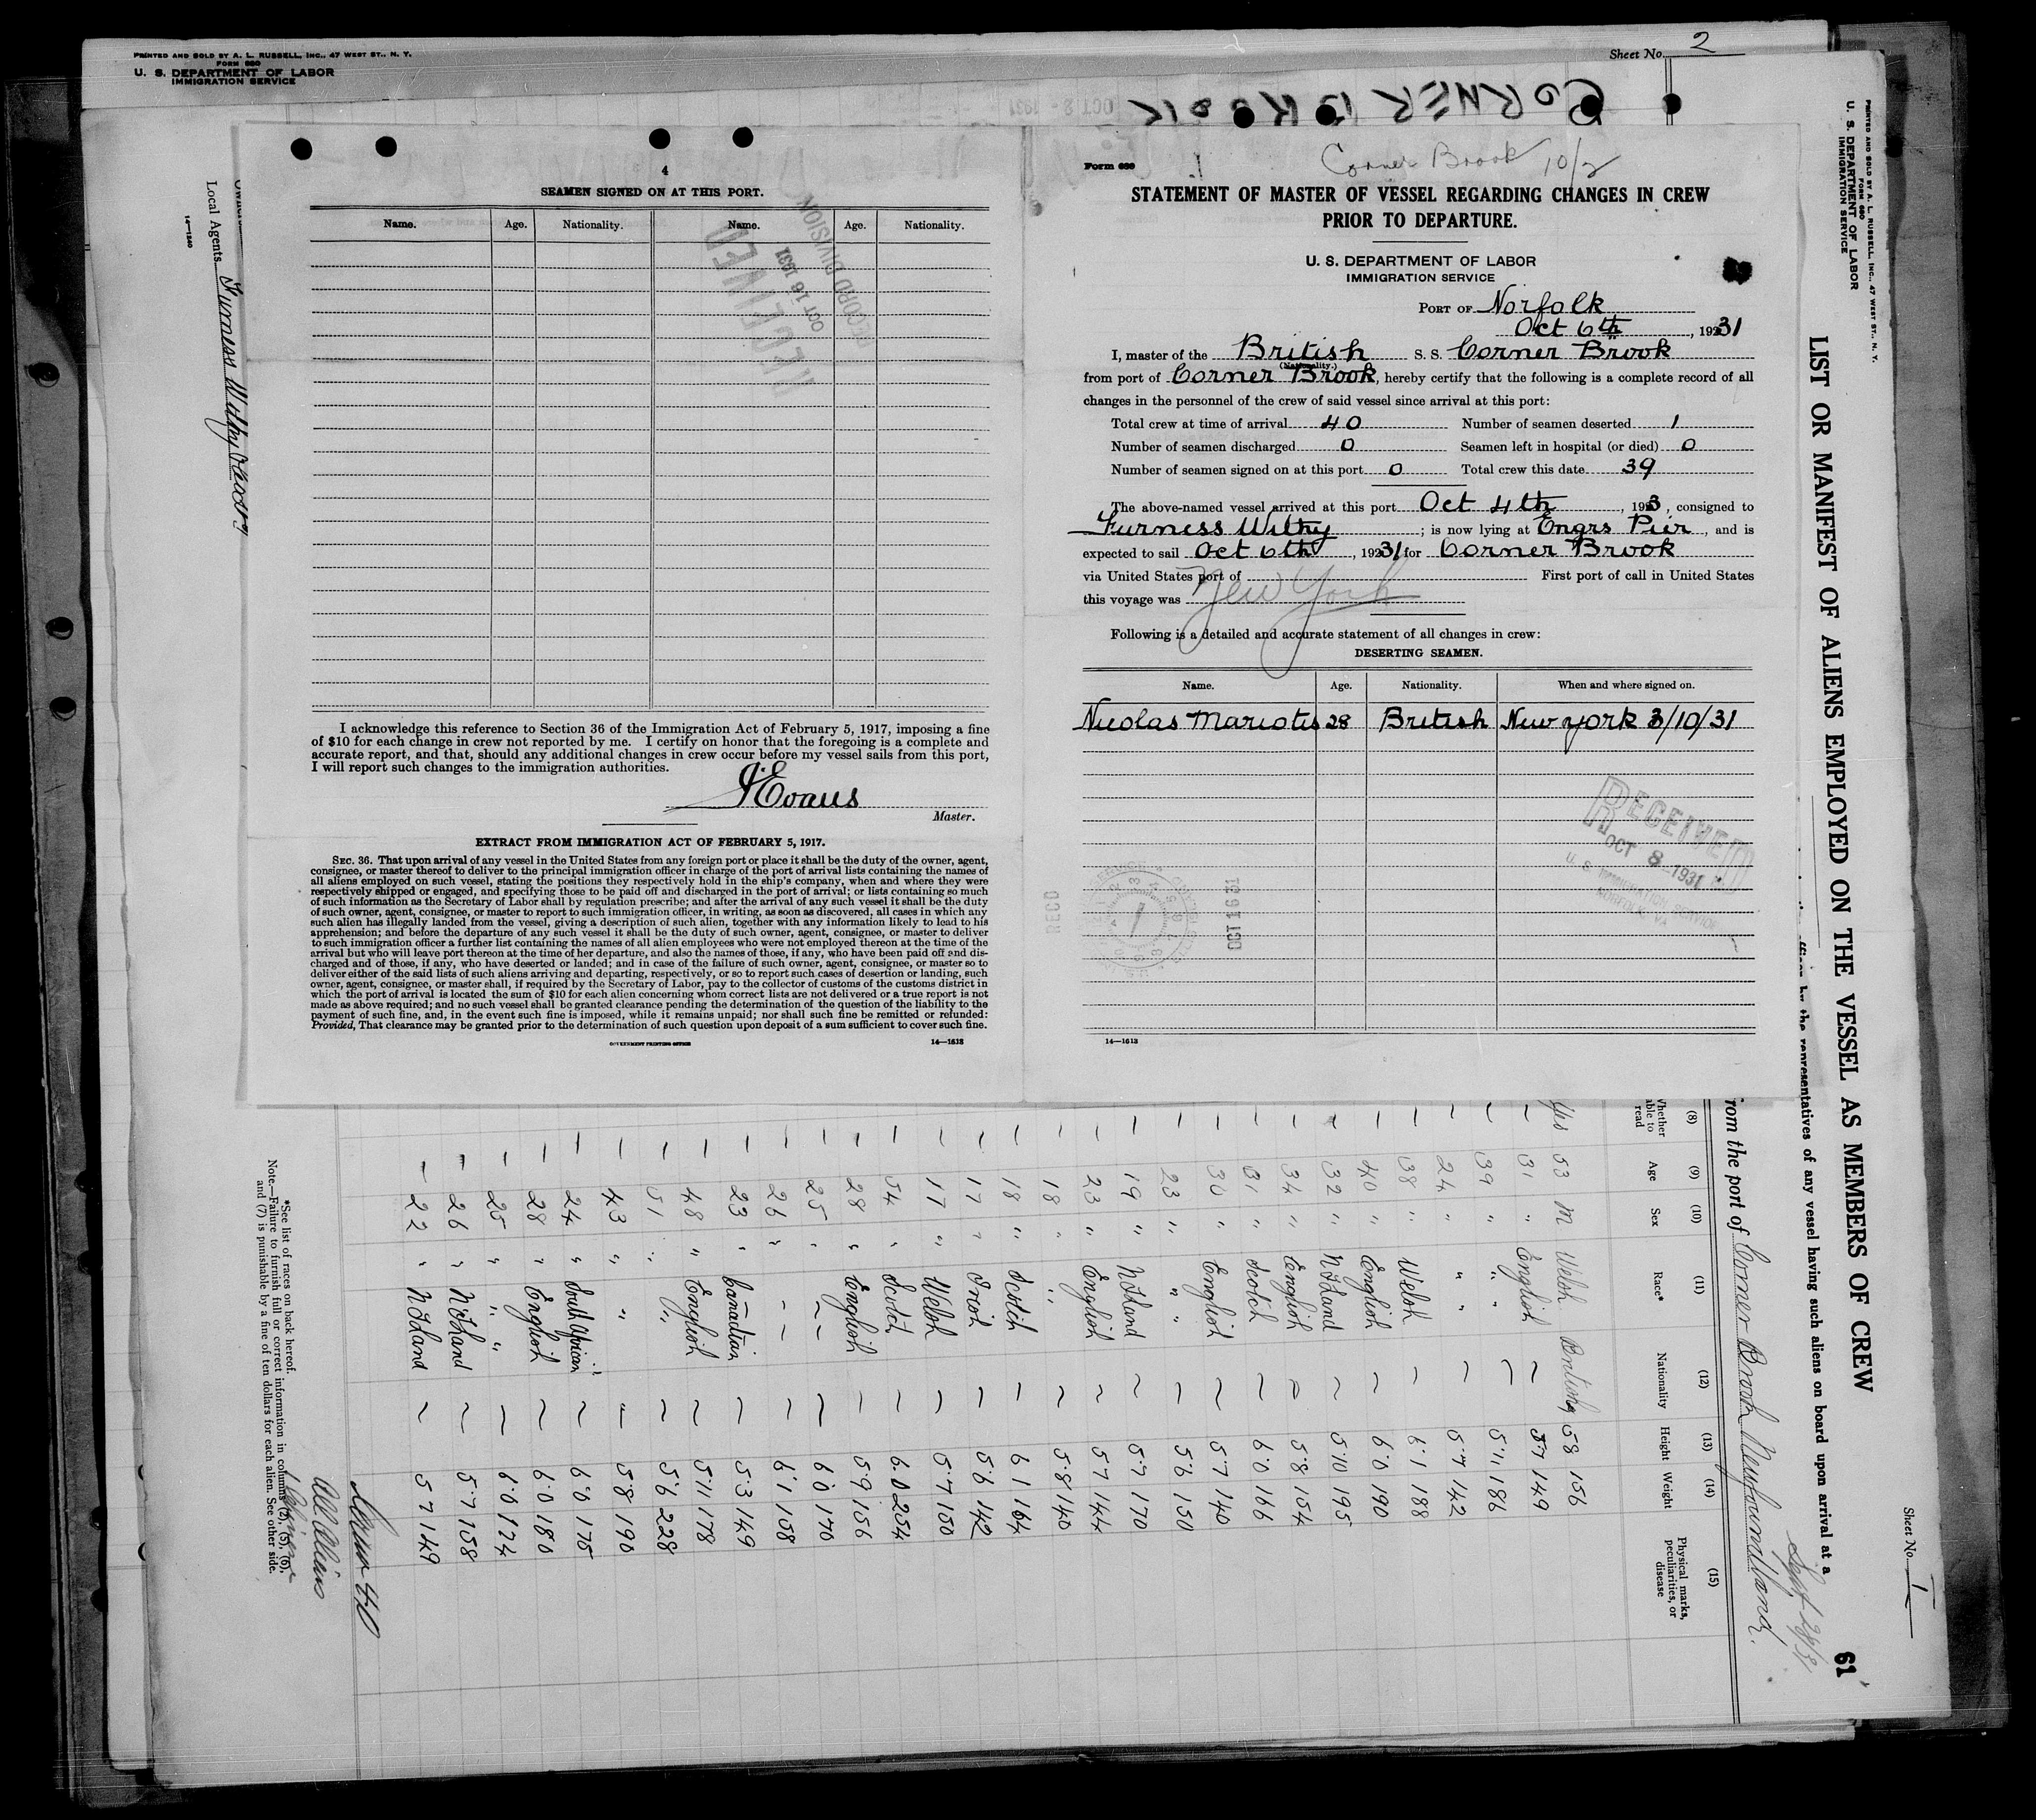 PRINTED AND SOLD BY A. L. RUSSELL, INC., 47 WEST ST., N. Y.
FORM 680
U. S. DEPARTMENT OF LABOR
IMMIGRATION SERVICE
Sheet No. 2
CORNER BROOK
OCT 2 - 1931
Local Agents Furness Withy
14—1240
4
SEAMEN SIGNED ON AT THIS PORT.
Name. Age. Nationality. Name. Age. Nationality.
RECEIVED
OCT 16 1931
RECORD DIVISION
I acknowledge this reference to Section 36 of the Immigration Act of February 5, 1917, imposing a fine
of $10 for each change in crew not reported by me. I certify on honor that the foregoing is a complete and
accurate report, and that, should any additional changes in crew occur before my vessel sails from this port,
I will report such changes to the immigration authorities.
J Evans
Master.
EXTRACT FROM IMMIGRATION ACT OF FEBRUARY 5, 1917.
SEC. 36. That upon arrival of any vessel in the United States from any foreign port or place it shall be the duty of the owner, agent,
consignee, or master thereof to deliver to the principal immigration officer in charge of the port of arrival lists containing the names of
all aliens employed on such vessel, stating the positions they respectively hold in the ship's company, when and where they were
respectively shipped or engaged, and specifying those to be paid off and discharged in the port of arrival; or lists containing so much
of such information as the Secretary of Labor shall by regulation prescribe; and after the arrival of any such vessel it shall be the duty
of such owner, agent, consignee, or master to report to such immigration officer, in writing, as soon as discovered, all cases in which any
such alien has illegally landed from the vessel, giving a description of such alien, together with any information likely to lead to his
apprehension; and before the departure of any such vessel it shall be the duty of such owner, agent, consignee, or master to deliver
to such immigration officer a further list containing the names of all alien employees who were not employed thereon at the time of the
arrival but who will leave port thereon at the time of her departure, and also the names of those, if any, who have been paid off and dis-
charged and of those, if any, who have deserted or landed; and in case of the failure of such owner, agent, consignee, or master so to
deliver either of the said lists of such aliens arriving and departing, respectively, or so to report such cases of desertion or landing, such
owner, agent, consignee, or master shall, if required by the Secretary of Labor, pay to the collector of customs of the customs district in
which the port of arrival is located the sum of $10 for each alien concerning whom correct lists are not delivered or a true report is not
made as above required; and no such vessel shall be granted clearance pending the determination of the question of the liability to the
payment of such fine, and, in the event such fine is imposed, while it remains unpaid; nor shall such fine be remitted or refunded:
Provided, That clearance may be granted prior to the determination of such question upon deposit of a sum sufficient to cover such fine.
GOVERNMENT PRINTING OFFICE 14—1613
Form 689
Corner Brook 10/2
STATEMENT OF MASTER OF VESSEL REGARDING CHANGES IN CREW
PRIOR TO DEPARTURE.
U. S. DEPARTMENT OF LABOR
IMMIGRATION SERVICE
PORT OF Norfolk
Oct 6th, 1931
I, master of the British S. S. Corner Brook
(Nationality.)
from port of Corner Brook, hereby certify that the following is a complete record of all
changes in the personnel of the crew of said vessel since arrival at this port:
Total crew at time of arrival 40 Number of seamen deserted 1
Number of seamen discharged 0 Seamen left in hospital (or died) 0
Number of seamen signed on at this port 0 Total crew this date 39
The above-named vessel arrived at this port Oct 4th, 193, consigned to
Furness Withy; is now lying at Engrs Pier, and is
expected to sail Oct 6th, 1931 for Corner Brook
via United States port of First port of call in United States
this voyage was New York
Following is a detailed and accurate statement of all changes in crew:
DESERTING SEAMEN.
Name. Age. Nationality. When and where signed on.
Nicolas Mariotis 28 British New York 3/10/31
RECEIVED
OCT 8 1931
U. S. IMMIGRATION SERVICE
NORFOLK, VA.
RECD
OCT 16 31
14—1613
PRINTED AND SOLD BY A. L. RUSSELL, INC., 47 WEST ST., N. Y.
FORM 680
U. S. DEPARTMENT OF LABOR
IMMIGRATION SERVICE
Sheet No. 1
LIST OR MANIFEST OF ALIENS EMPLOYED ON THE VESSEL AS MEMBERS OF CREW
61
by the representatives of any vessel having such aliens on board upon arrival at a
from the port of Corner Brook Newfoundland.
(8) (9) (10) (11) (12) (13) (14) (15)
Whether able to read Age Sex Race* Nationality Height Weight Physical marks, peculiarities, or disease
Yes 53 M Welsh British 58 156
31 " English 57 149
39 " " 5'11 186
24 " " 5'7 142
38 " Welsh 6'1 188
40 " English 6'0 190
32 " NFLand 5'10 195
34 " English 5'8 154
31 " Scotch 6'0 166
30 " English 5'7 140
23 " " 5'6 150
19 " NFLand 5'7 170
23 " English 57 144
18 " 5'8 140
18 " Scotch 61 164
17 " Irish 5'6 142
17 " Welsh 5'7 150
54 " Scotch 6.0 254
28 " English 5'9 156
25 " 6'0 170
26 " 6'1 158
23 " Canadian 5'3 149
48 " English 5'11 178
51 " " 5'6 228
43 " " 5'8 190
24 " South African 6'0 175
28 " English 6.0 180
25 " " 6.0 174
26 " NFLand 5'7 158
22 " NFLand 57 149
*See list of races on back hereof.
Note.—Failure to furnish full or correct information in columns (2), (5), (6),
and (7) is punishable by a fine of ten dollars for each alien. See other side.
40
All Aliens